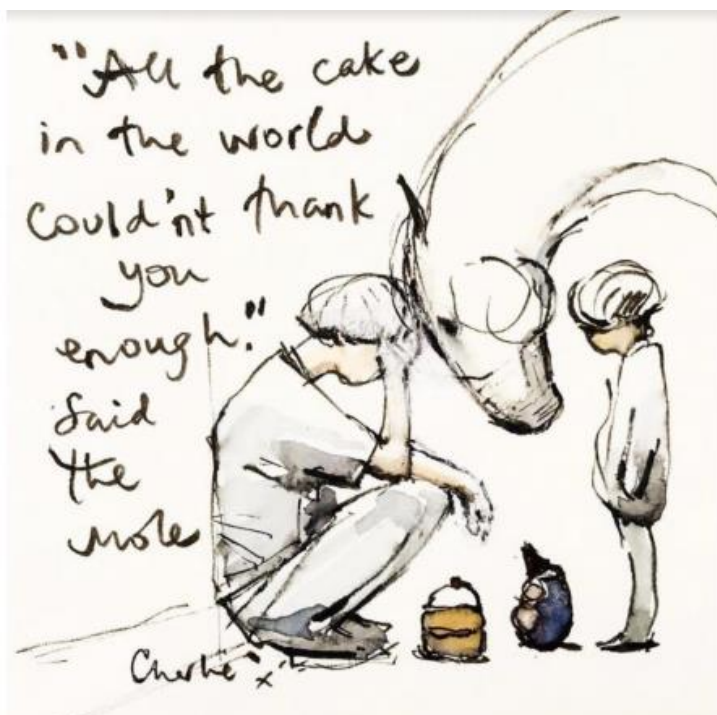 "All the cake
in the world
could'nt thank
you
enough."
said
the
mole
Charlie x